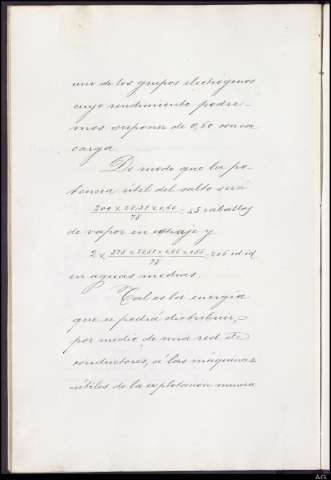 uno de los grupos electrogenos
cuyo rendimiento podre-
mos suponer de 0,60 con esa
carga.
De modo que la po-
tencia útil del salto será
200 x 28,28 x 0,60 / 75 = 45 caballos
de vapor en estiaje y
2 x
en aguas medias.
Tal es la energía
que se podrá distribuir,
por medio de una red de
conductores, á las máquinas
útiles de la explotacion minera
A.G.